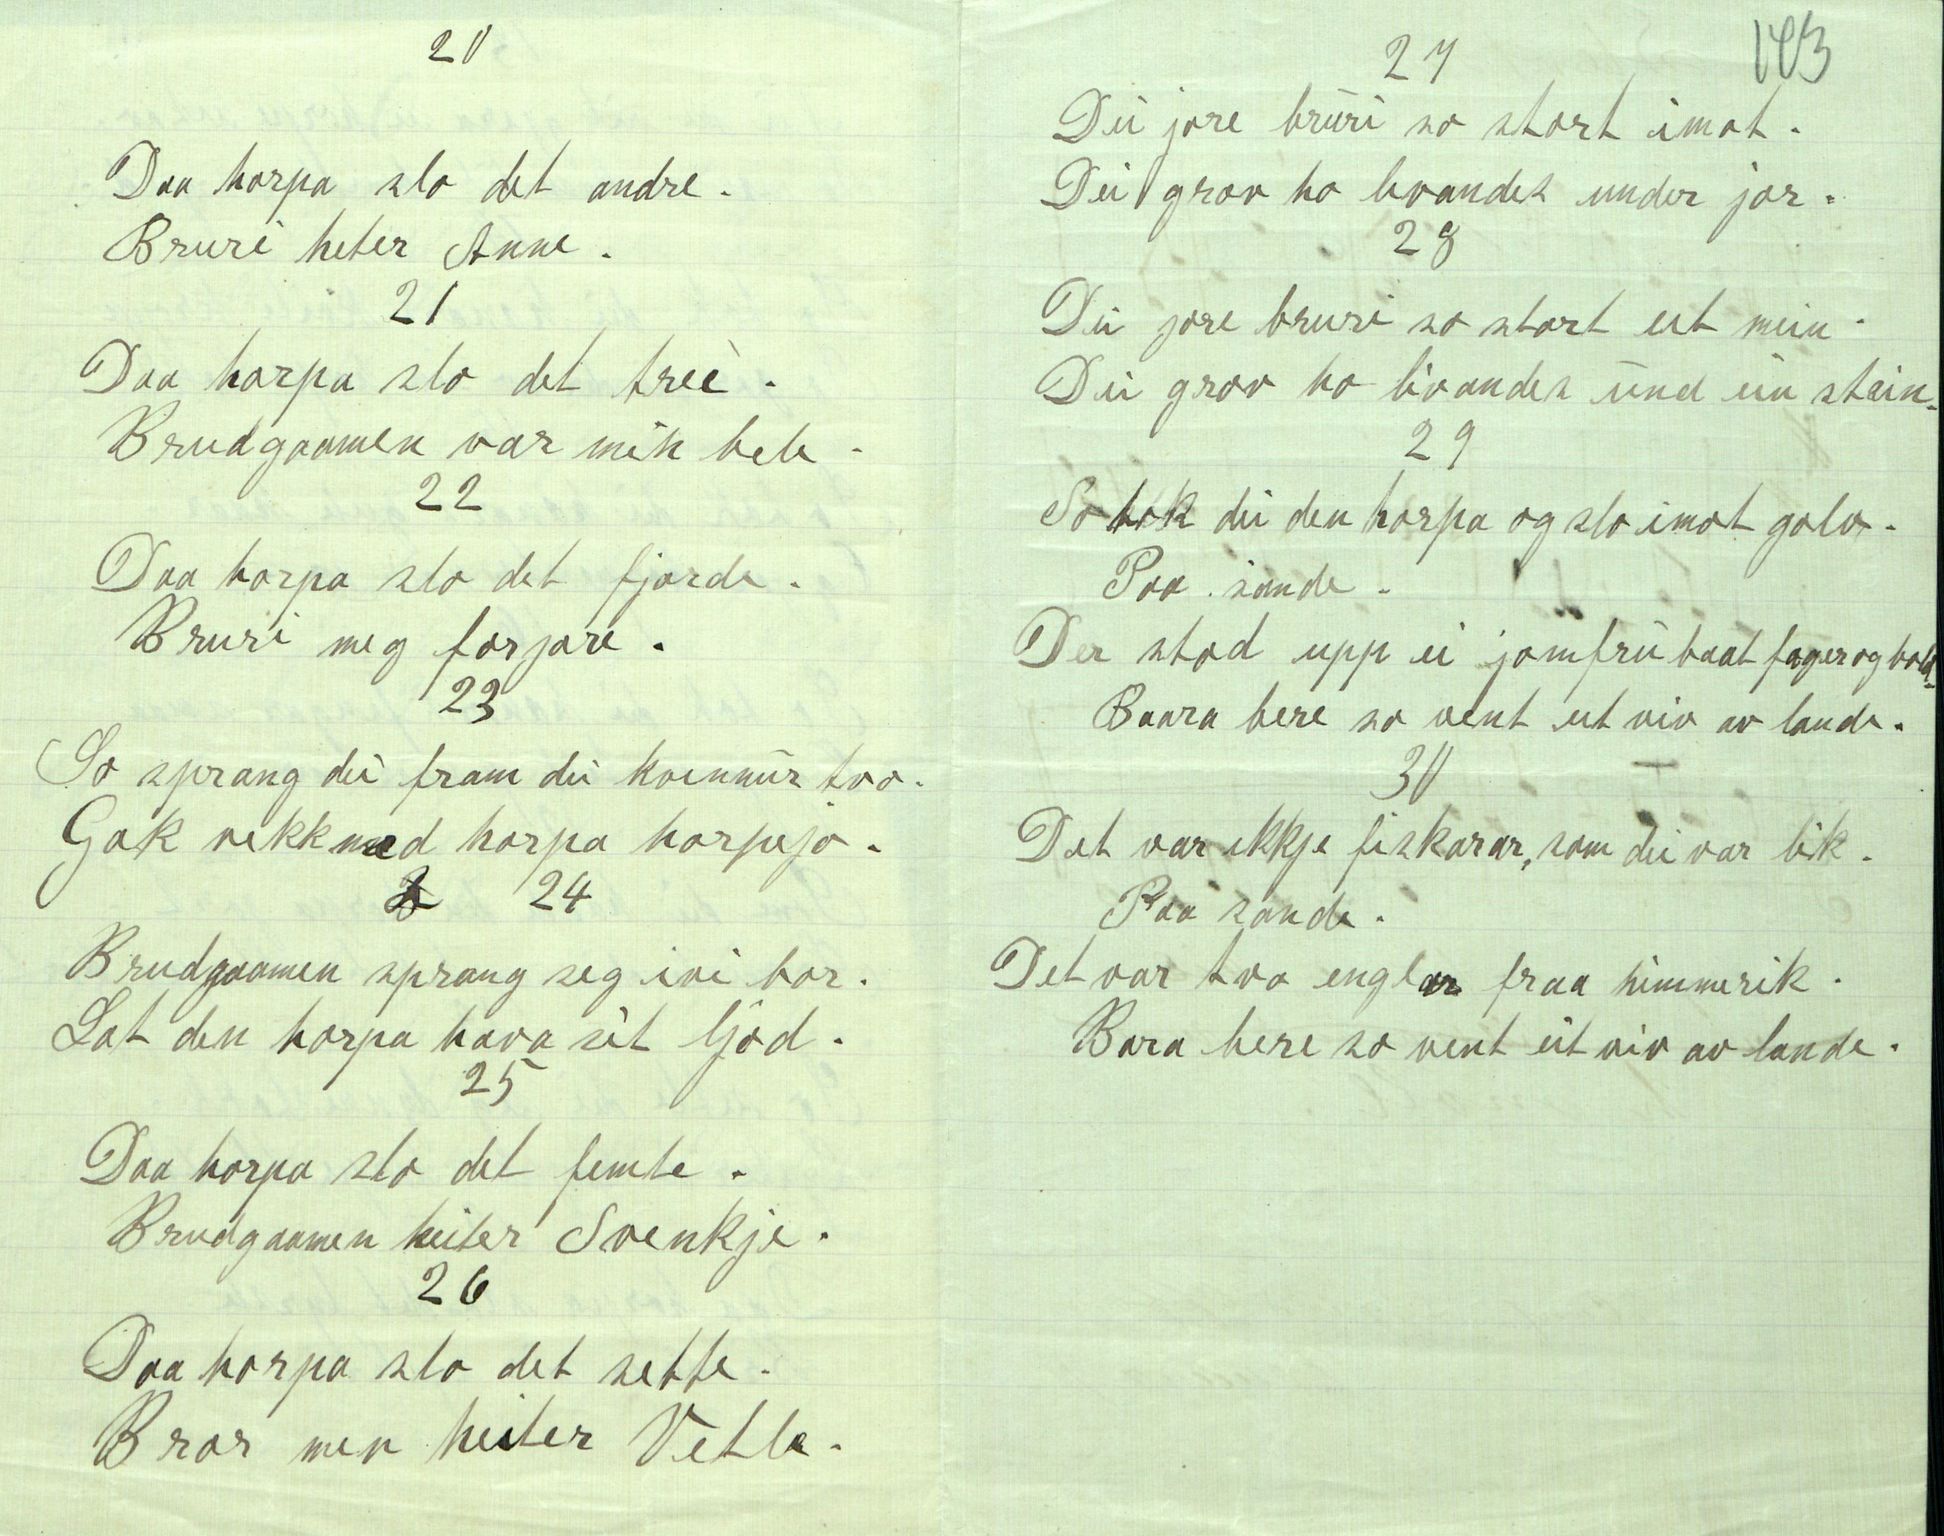 20
Daa horpa slo det andre.
Bruri heter Anne.
21
Daa horpa slo det treè.
Brudgaamen var min bele.
22
Daa horpa slo det fjorde.
Bruri meg forjore.
23
So sprang dei fram dei kvinnur tvo.
Gak vekk med horpa horpejo.
24
Brudgaamen sprang seg ivi bor.
Lat den horpa hava sit ljod.
25
Daa horpa slo det femte.
Brudgaamen heiter Svenkje.
26
Daa horpa slo det sette.
Bror men heiter Vetle.
143
27
Dei jore brūri so stort imot.
Dei grov ho livandes under jor.
28
Dei jore bruri so stort eit mein.
Dei grov ho livandes ūnd ein stein.
29
So tok dei den horpa og slo imot golv.
Paa sande.
Der stod upp ei jomfrū baat fager og bold.
Baara bere so vent eit viv av lande.
30
Det var ikkje fiskarar, som dei var lik.
Paa sande.
Det var tvo englar fraa himmerik.
Bara bere so vent eit viv av lande.